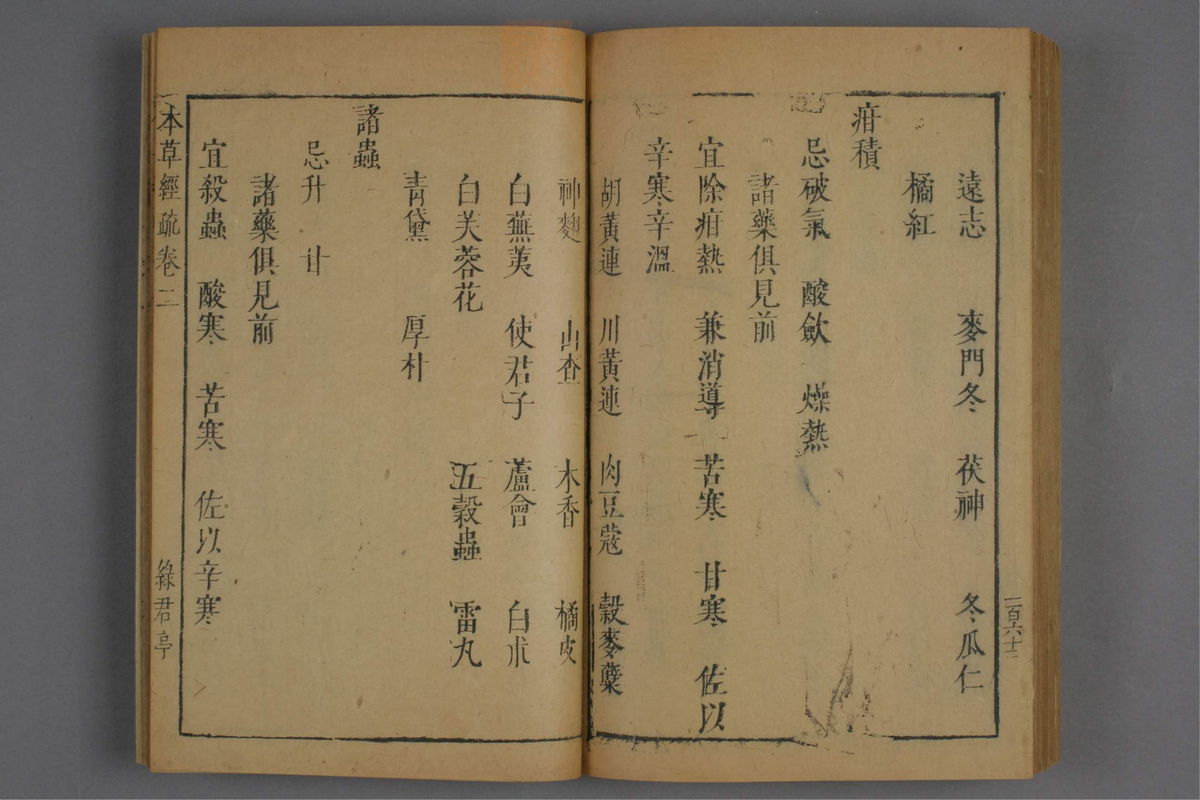 遠志 麥門冬 茯神 冬瓜仁
橘紅
疳積
忌破氣 酸歛 燥熱
諸藥俱見前
宜除疳熱 兼消導 苦寒 甘寒 佐以
辛寒辛溫
胡黃連 川黃連 肉豆蔻 穀麥蘖
神麯 山查 木香 橘皮
白蕪荑 使君子 蘆會 白朮
白芙蓉花 五穀蟲 雷丸
青黛 厚朴
諸蟲
忌升 甘
諸藥俱見前
宜殺蟲 酸寒 苦寒 佐以辛寒
本草經疏卷二 綠君亭